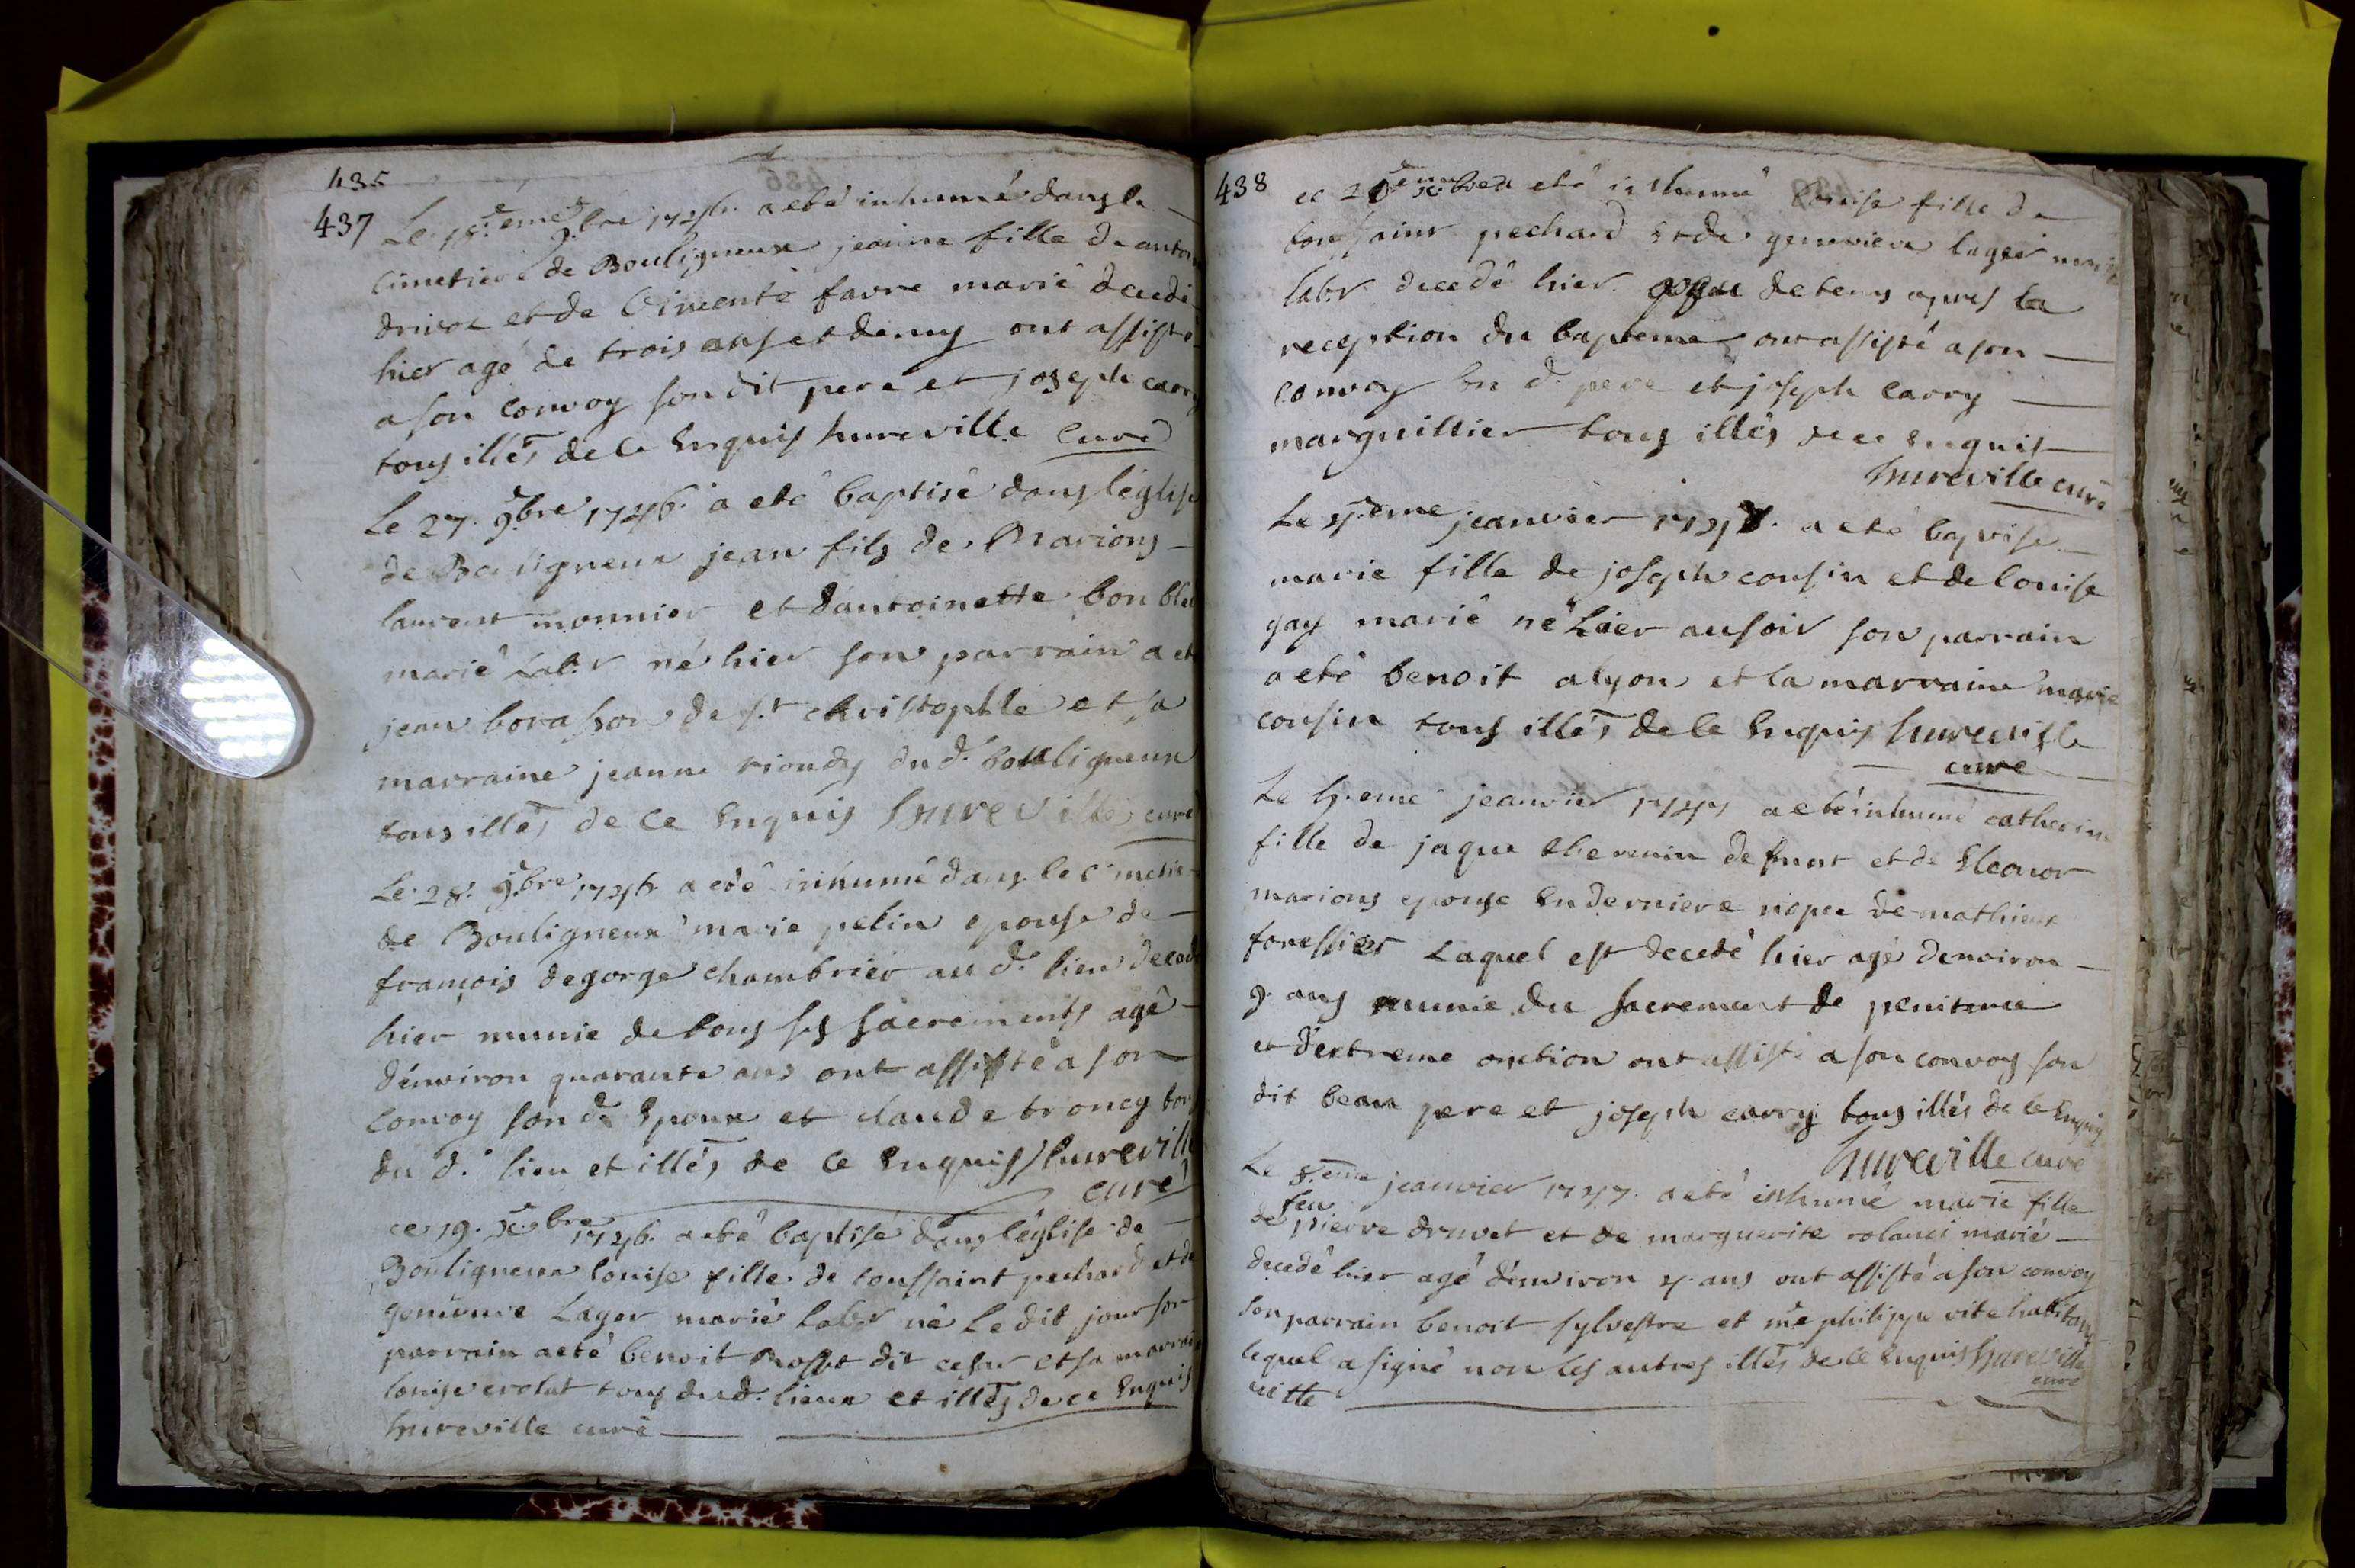 435
437
Le 18.eme 9.bre 1746. a eté inhumé dans le
cimetiere de Bouligneux jeanne fille de antoi
et de favre marié decedé
hier agé de trois ans et demy ont assisté
a son convoy son dit pere et joseph carry
tous illés de ce Enquis hureville curé
Le 27. 9.bre 1746. a eté baptisé dans l'église
de Bouligneux jean fils de Marions
laurent monnier et d'antoinette bon
marié Labr né hier son parrain a eté
jean borasson de s.t christophle et sa
marraine jeanne rioudy du d. bouligneux
tous illés de ce Enquis hureville curé
Le 28. 9.bre 1746 a eté inhumé dans le cimetier
de Bouligneux marie pelin epouse de
françois degorge chambrier au d. lieu decedé
hier munie de tous ses sacrements agé
d'environ quarante ans ont assisté a son
convoy son d. Epoux et claude troncy tous
du d. lieu et illés de ce Enquis hureville
curé
ce 19. x.bre 1746. a eté baptisé dans l'église de
Bouligneux louise fille de toussaint pechard et de
Lager marié labr né le dit jour son
parrain a eté benoit dit cesar et sa marraine
louise tous du d. lieux et illés de ce Enquis
hureville curé
438
ce x.bre a eté inhumé louise fille de
toussaint pechard et de genevieve lager marié
labr decedé hier de tems apres la
reception du bapteme ont assisté a son
convoy son d. pere et joseph carry
marguillier tous illés de ce enquis
hureville curé
Le 4.eme jeanvier 1747. a eté baptise
marie fille de joseph cousin et de louise
gay marié né hier au soir son parrain
a eté benoit alyon et la marraine marie
cousin tous illés de ce Enquis hureville
curé
Le jeanvier 1747 a eté inhumé catherine
fille de jaque thevenin defunt et de Eleonor
marions epouse En derniere nopce de mathieux
foressier Laquel est decedé hier agé d'environ
9 ans munie du sacrement de penitence
et d'extreme onction ont assisté a son convoy son
dit beau pere et joseph carry tous illés de ce Enquis
hureville curé
Le 8.eme jeanvier 1747. a eté inhumé marie fille
feu
de pierre druvet et de marguerite marié
decedé hier agé d'environ 4. ans ont assisté a son convoy
son parrain benoit sylvestre et me philippe vite habitans
lequel a signé non les autres illés de ce Enquis hureville
curé
vitte